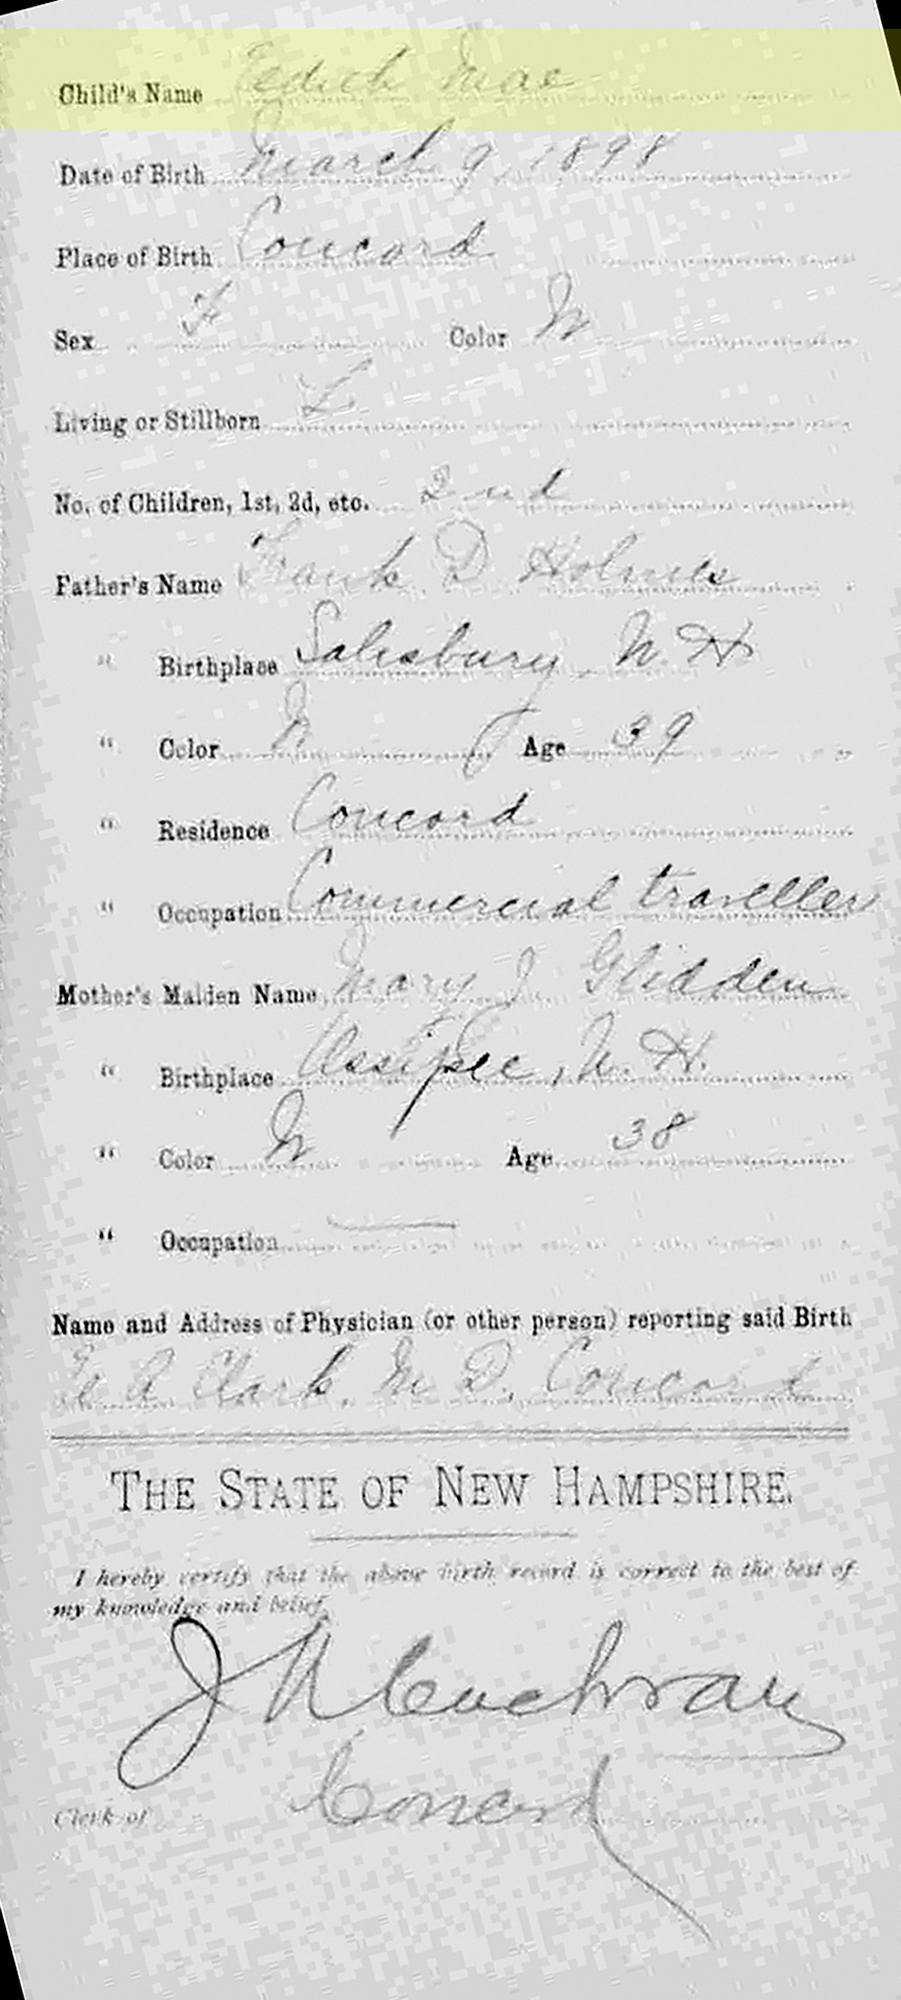 Child's Name Edith Mae
Date of Birth March 9, 1898
Place of Birth Concord
Sex F Color W
Living or Stillborn L
No. of Children, 1st, 2d, etc. 2nd
Father's Name Frank D Holmes
" Birthplace Salisbury, N. H
" Color W Age 39
" Residence Concord
" Occupation Commercial traveller
Mother's Maiden Name Mary J Glidden
" Birthplace Ossipee, N. H.
" Color W Age 38
" Occupation —
Name and Address of Physician (or other person) reporting said Birth
A Clark, M D, Concord
THE STATE OF NEW HAMPSHIRE.
I hereby certify that the above birth record is correct to the best of
my knowledge and belief.
Cochran
Clerk of Concord